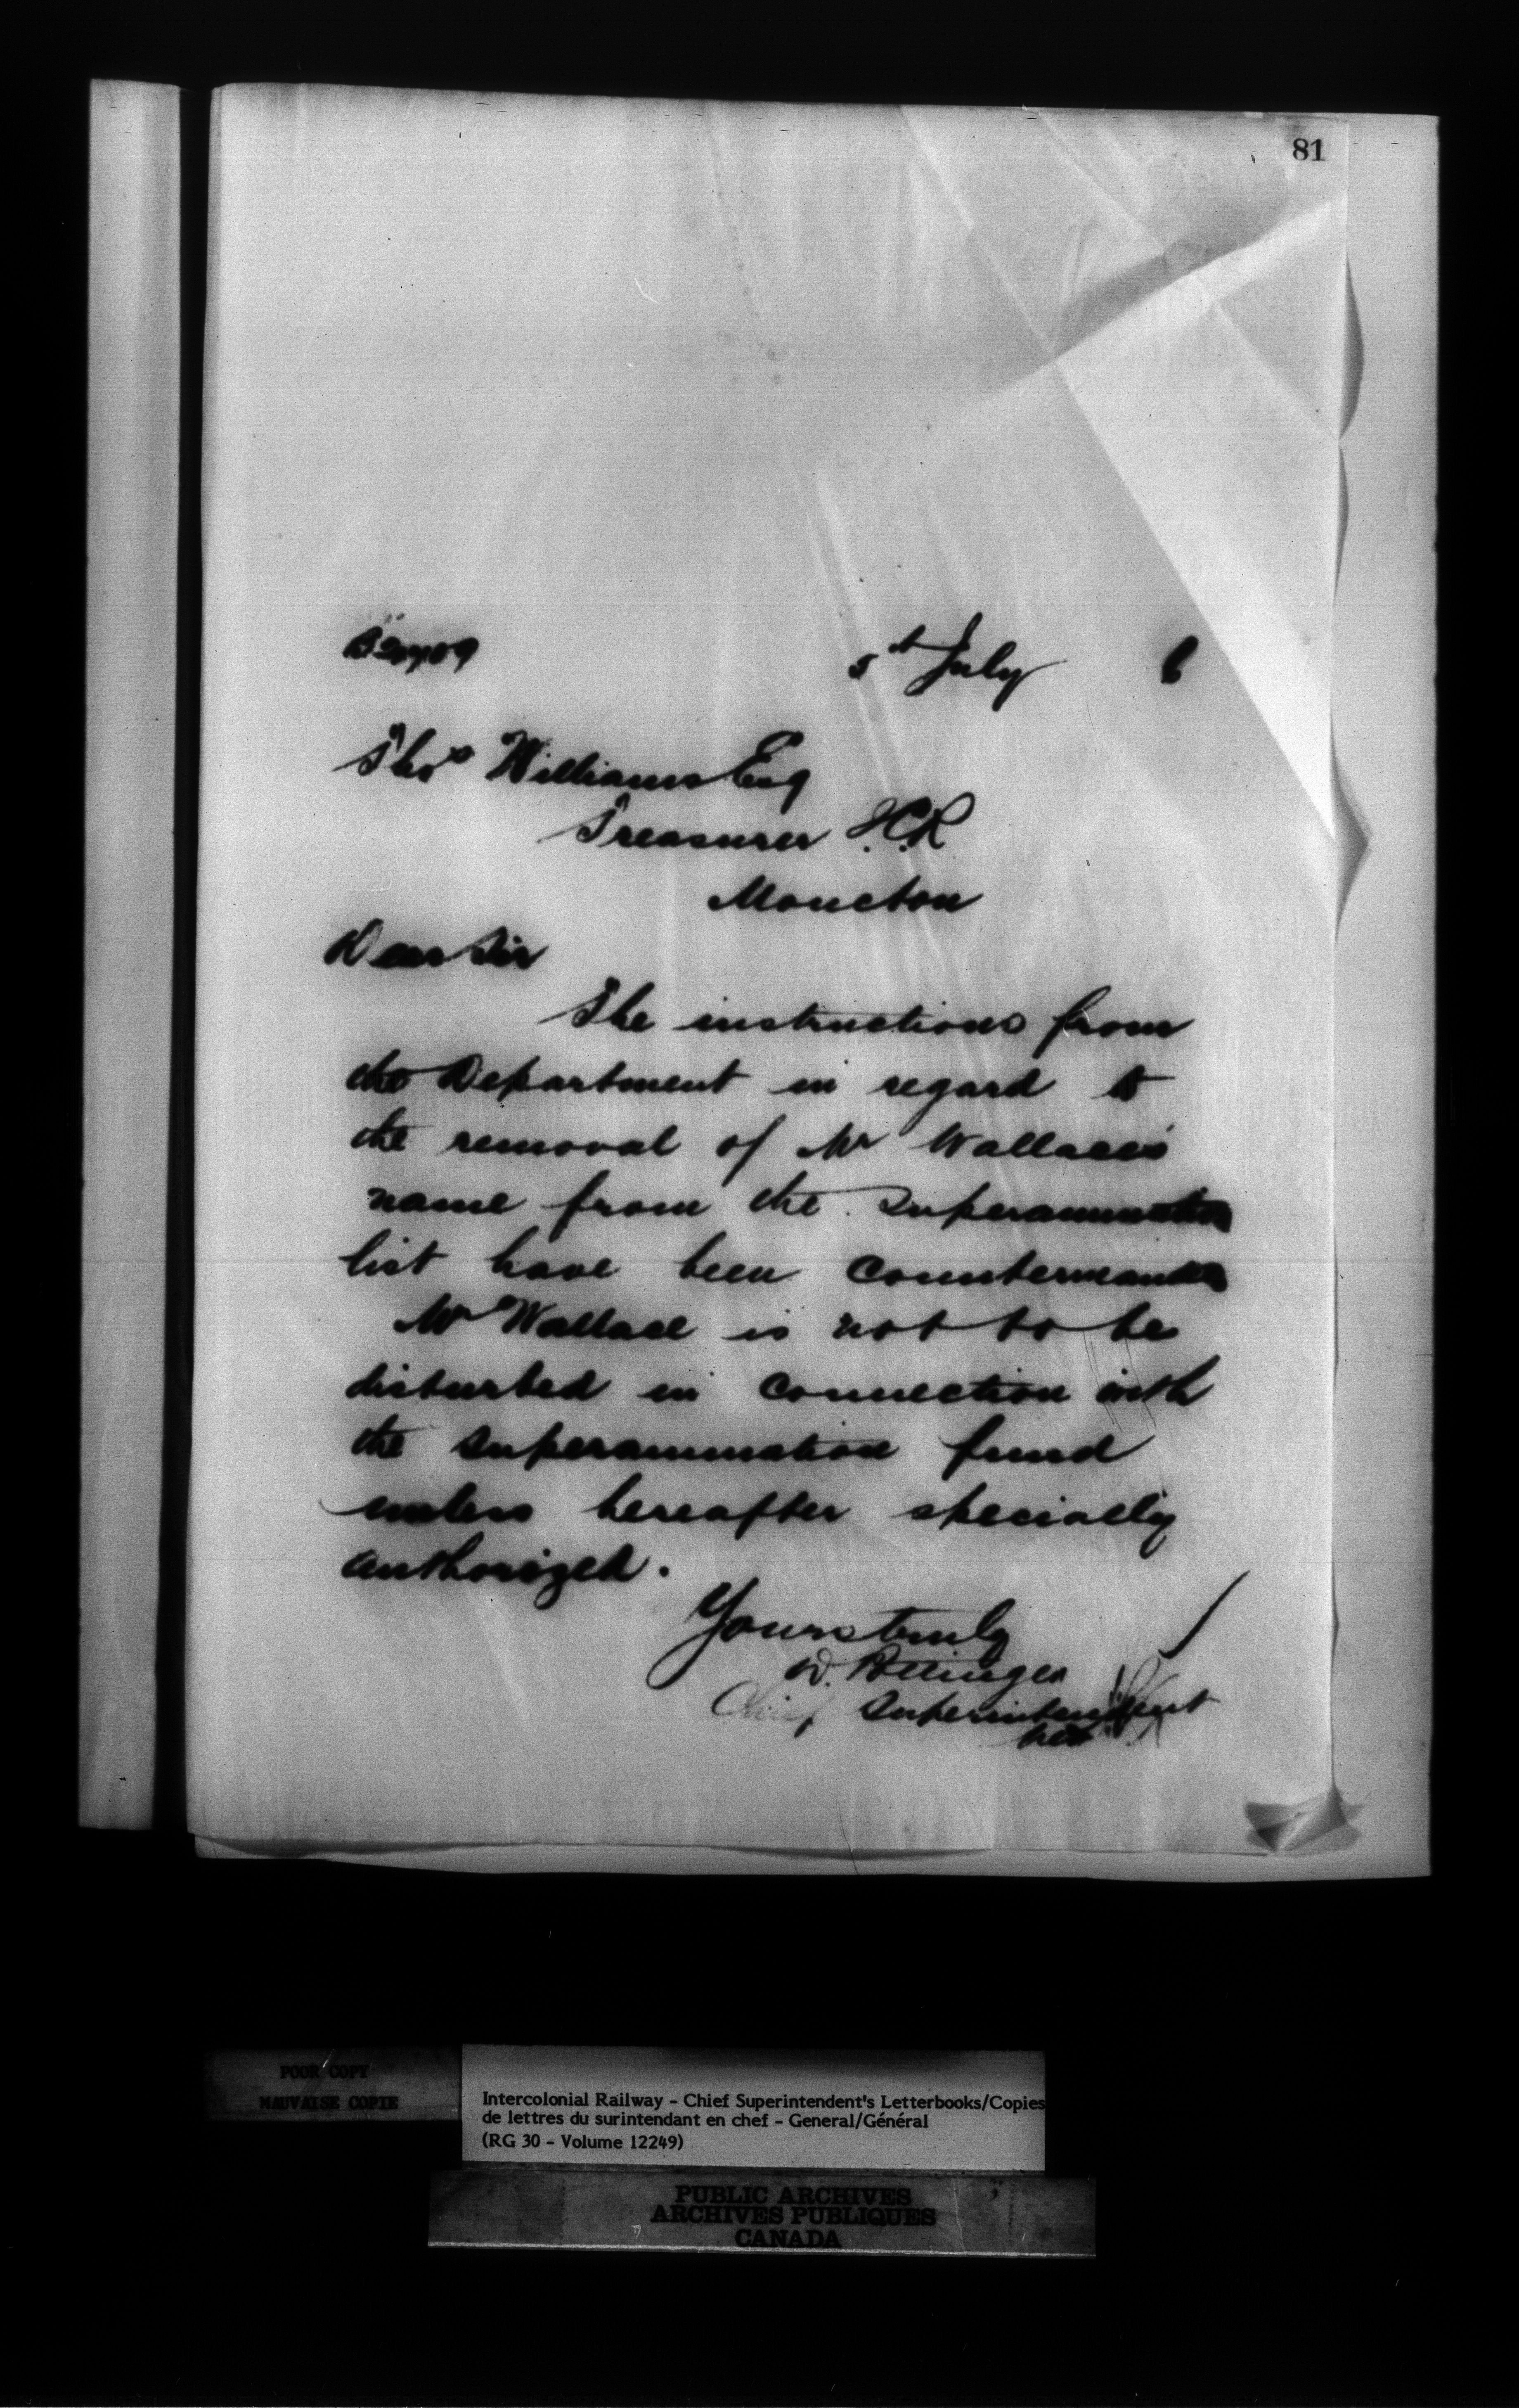 81
5th July 6
Thos Williams Esq
Treasurer I.C.R
Moncton
Dear Sir
The instructions from
the Department in regard to
the removal of Mr Wallace's
name from the superannuation
list have been countermanded
Mr Wallace is not to be
disturbed in connection with
the superannuation fund
unless hereafter specially
authorized.
Yours truly
D. Pottinger
Chief Superintendent
POOR COPY
MAUVAISE COPIE
Intercolonial Railway - Chief Superintendent's Letterbooks/Copies
de lettres du surintendant en chef - General/Général
(RG 30 - Volume 12249)
PUBLIC ARCHIVES
ARCHIVES PUBLIQUES
CANADA